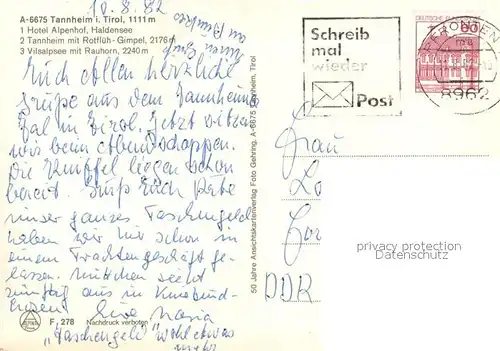 10.8.82
A-6675 Tannheim i. Tirol, 1111 m
1 Hotel Alpenhof, Haldensee
2 Tannheim mit Rotflüh - Gimpel, 2176 m
3 Vilsalpsee mit Rauhorn, 2240 m
Euch Allen herzliche
Grüße aus dem Tannheimer
Tal in Tirol. Jetzt sitzen
wir beim Abendschoppen.
Die liegen schon
bereit. Grüß Euch
unser ganzes Taschengeld
haben wir hier schon in
einem Trachtengeschäft ge-
lassen. sieht
aus in
Eure Maria
"Taschengeld" wohl etwas
mehr
F. 278 Nachdruck verboten
50 Jahre Ansichtskartenverlag Foto Gehring, A-6675 Tannheim, Tirol
Schreib
mal
wieder
Post
DEUTSCHE BUNDESPOST
60
PFRONTEN
8962
Frau
DDR
privacy protection
Datenschutz